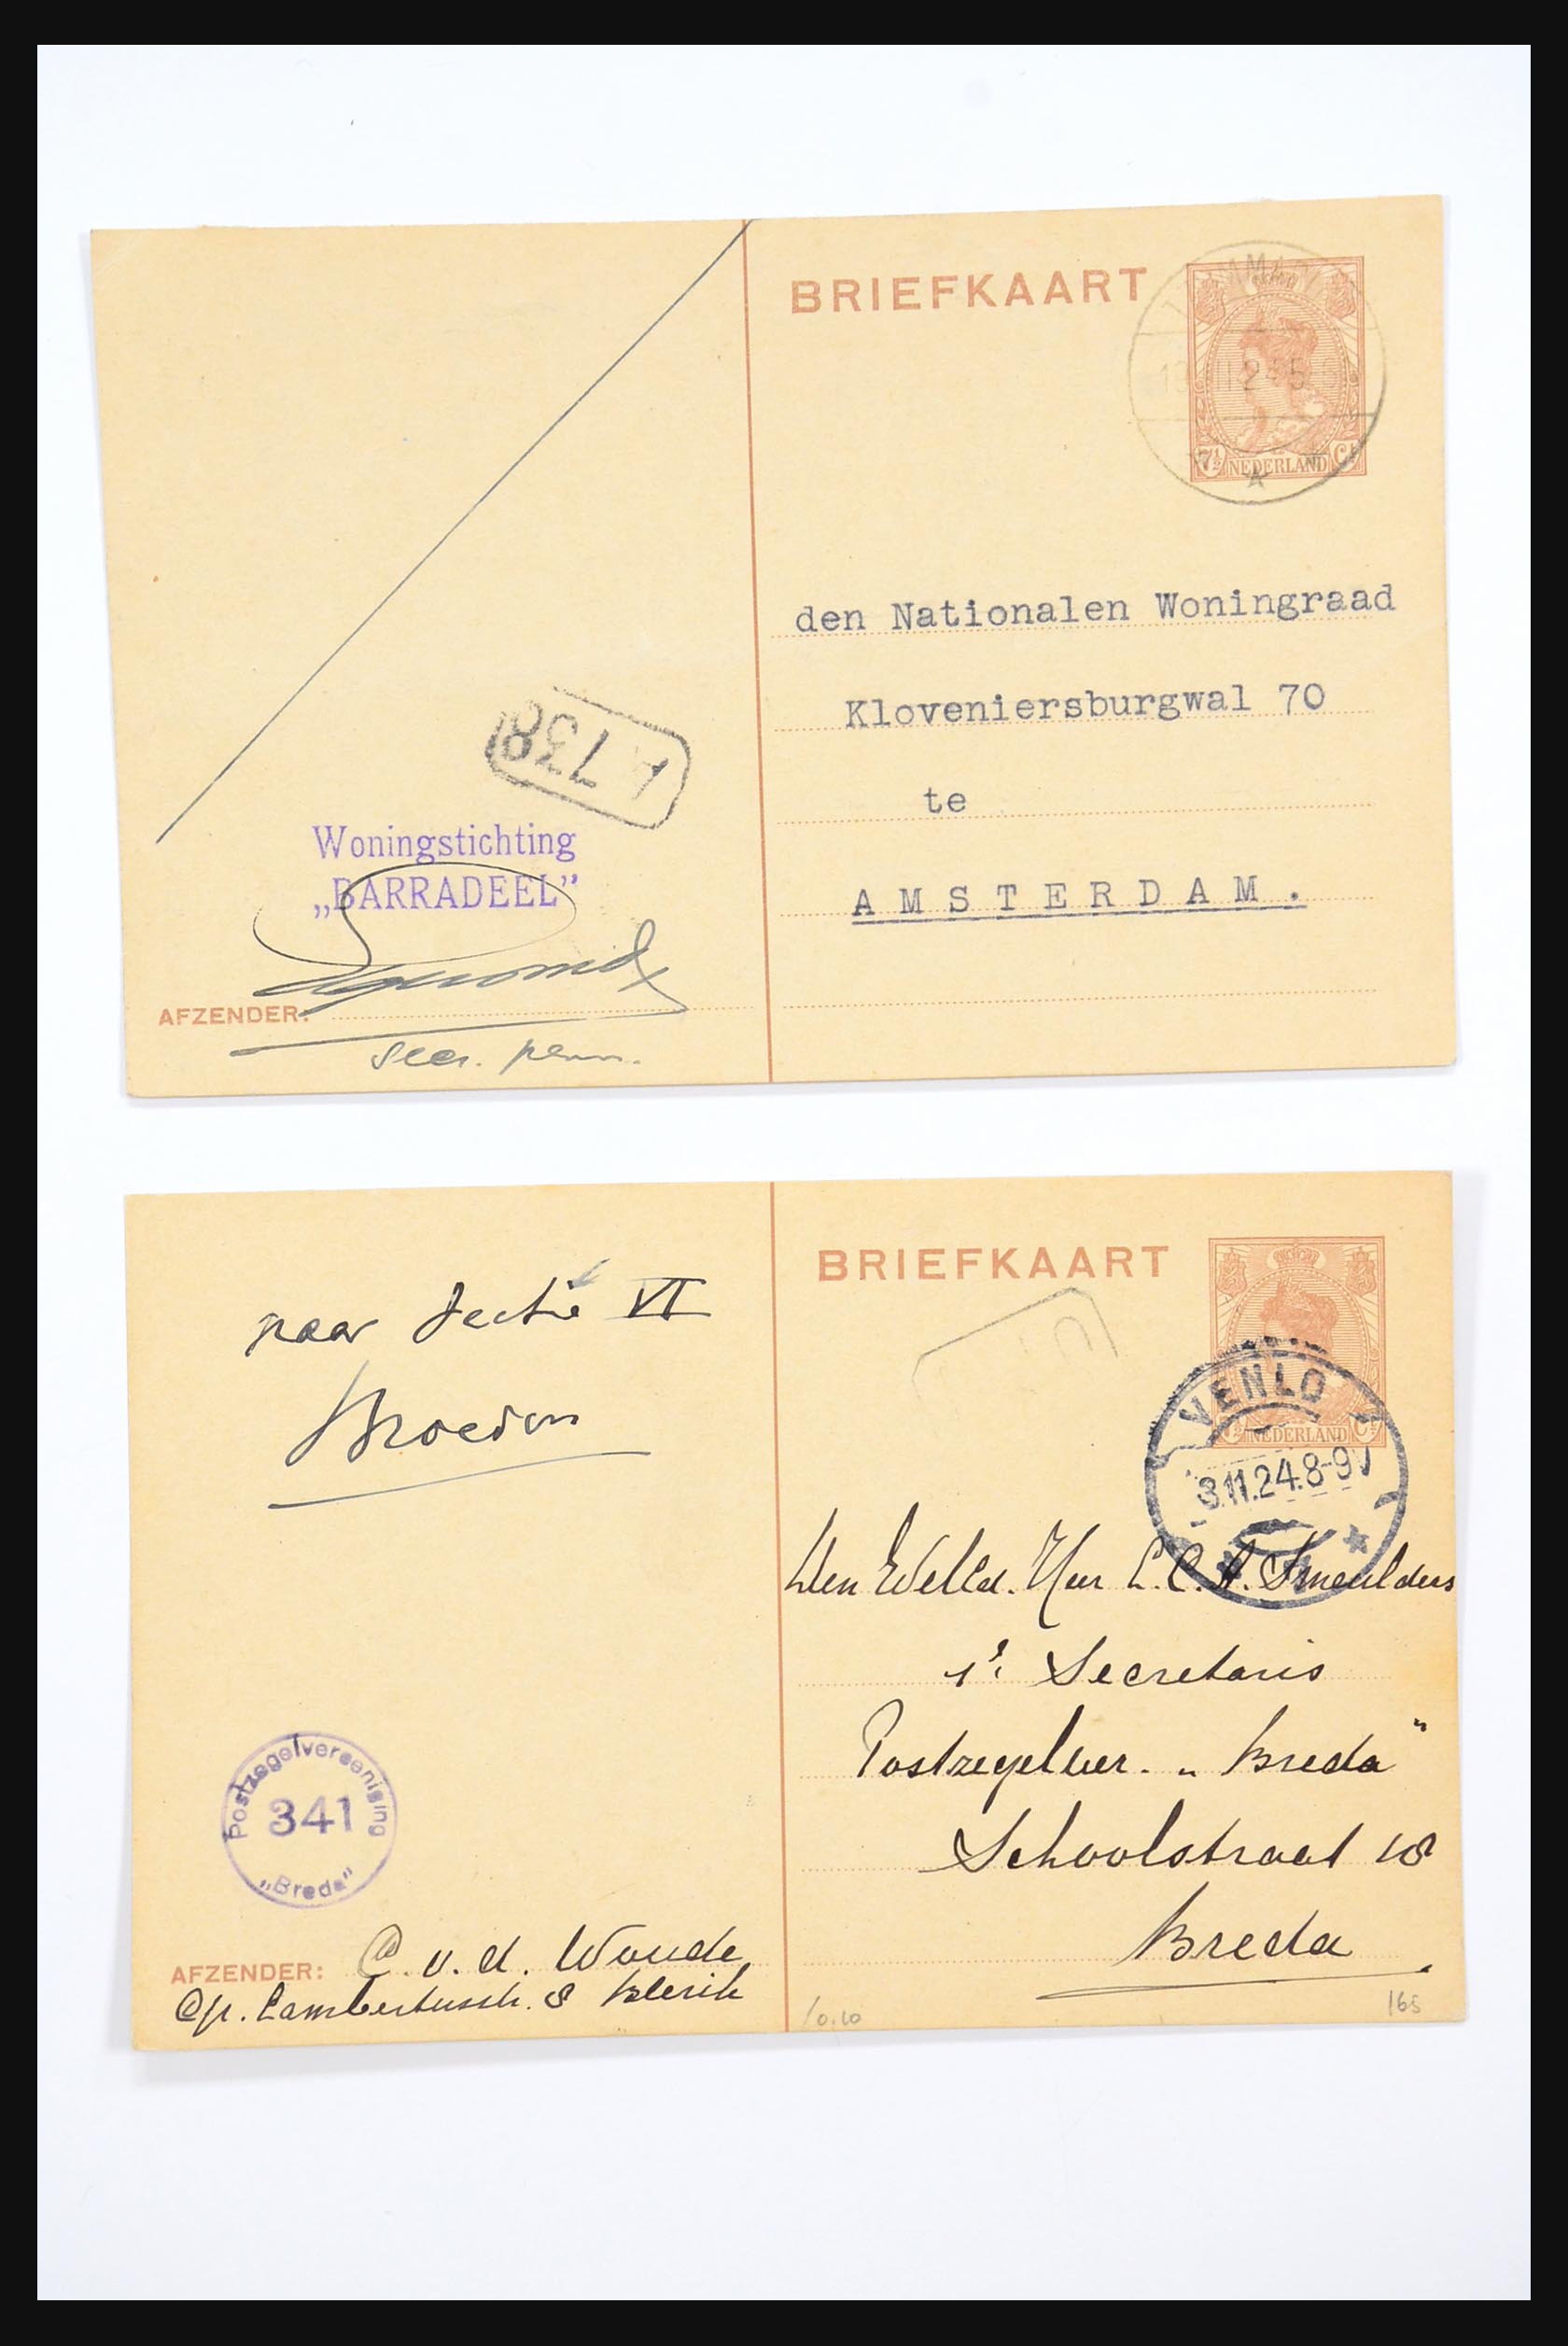 BRIEFKAART
7½ NEDERLAND Ct
den Nationalen Woningraad
Kloveniersburgwal 70
te
AMSTERDAM.
A 738
Woningstichting
„BARRADEEL”
AFZENDER:
secr. penn.
BRIEFKAART
NEDERLAND
VENLO
3.11.24.8-9V
naar Sectie VI
Broedon
Den WelEd. Heer L.C.A. Smeulders
1e Secretaris
Postzegelver. „Breda”
Schoolstraat 18
Breda
Postzegelvereeniging
341
„Breda”
AFZENDER: C. v. d. Woude
Op. Lambertusstr. 8 Blerik
10.10
165